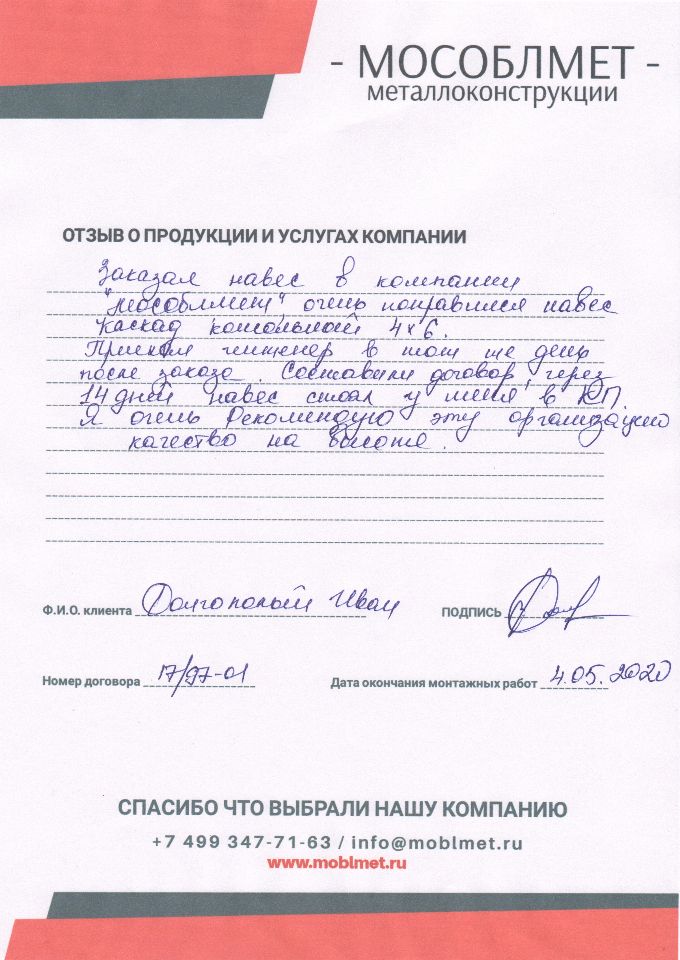 - МОСОБЛМЕТ -
металлоконструкции
ОТЗЫВ О ПРОДУКЦИИ И УСЛУГАХ КОМПАНИИ
Заказал навес в компании
"Мособлмет", очень понравился навес
каскад консольный 4х6.
Приехал инженер в тот же день
после заказа. Составили договор, через
14 дней навес стоял у меня в КП.
Я очень рекомендую эту организацию
качество на высоте.
Ф.И.О. клиента Долгополый Иван
ПОДПИСЬ
Номер договора 17/97-01
Дата окончания монтажных работ 4.05.2020
СПАСИБО ЧТО ВЫБРАЛИ НАШУ КОМПАНИЮ
+7 499 347-71-63 / info@moblmet.ru
www.moblmet.ru